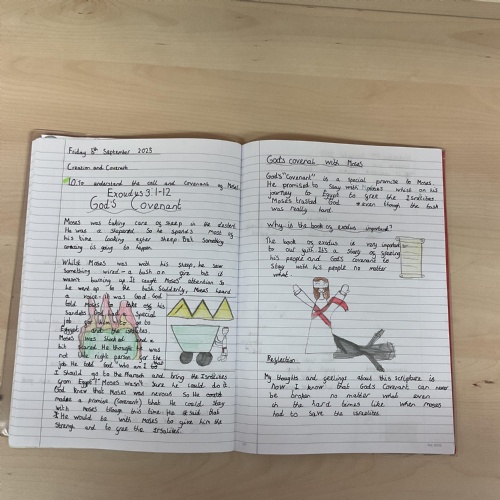 Friday 8th September 2023
Creation and Covenant
LO: To understand the call and covenant of Moses.
Exodus 3:1-12
God's Covenant
Moses was taking care of sheep in the desert.
He was a sheperd. So he spends most of
his time looking after sheep. But something
amazing is going to happen.
Whilst Moses was with his sheep, he saw
something wired - a bush on fire but it
wasn't burning up. It caught Moses attention so
he went up to the bush. Suddenly, Moses heard
a voice. It was God. God
told Moses to take off his
Sandals. God had a special
job for him to go to
Egypt and the Israelites.
Moses was shocked and a
bit scared. He thought he was
not the right person for the
job. He told God "who am I that
I should go to the Pharoah and bring the Israelites
from Egypt?" Moses wasn't sure he could do it.
God knew that Moses was nervous so he
makes a promise (covenant) that he could stay
with Moses through this time. He said that
He would be with Moses to give him the
Strength and to free the Israelites.
God's covenat with Moses
God's "Covenant" is a special promise to Moses.
He promised to stay with Moses whilst on his
journey to Egypt to free the Israelites.
Moses trusted God even though the task
was really hard.
Why is the book of exodus important?
The book of exodus is very important
to our faith. It's a story of freeing
his people and God's covenant to
Stay with his people no matter
what.
Reflection
My thoughts and feelings about this scripture is
now I know that God's Covenant can never
be broken no matter what even
in the hard times like when Moses
had to save the israelites.